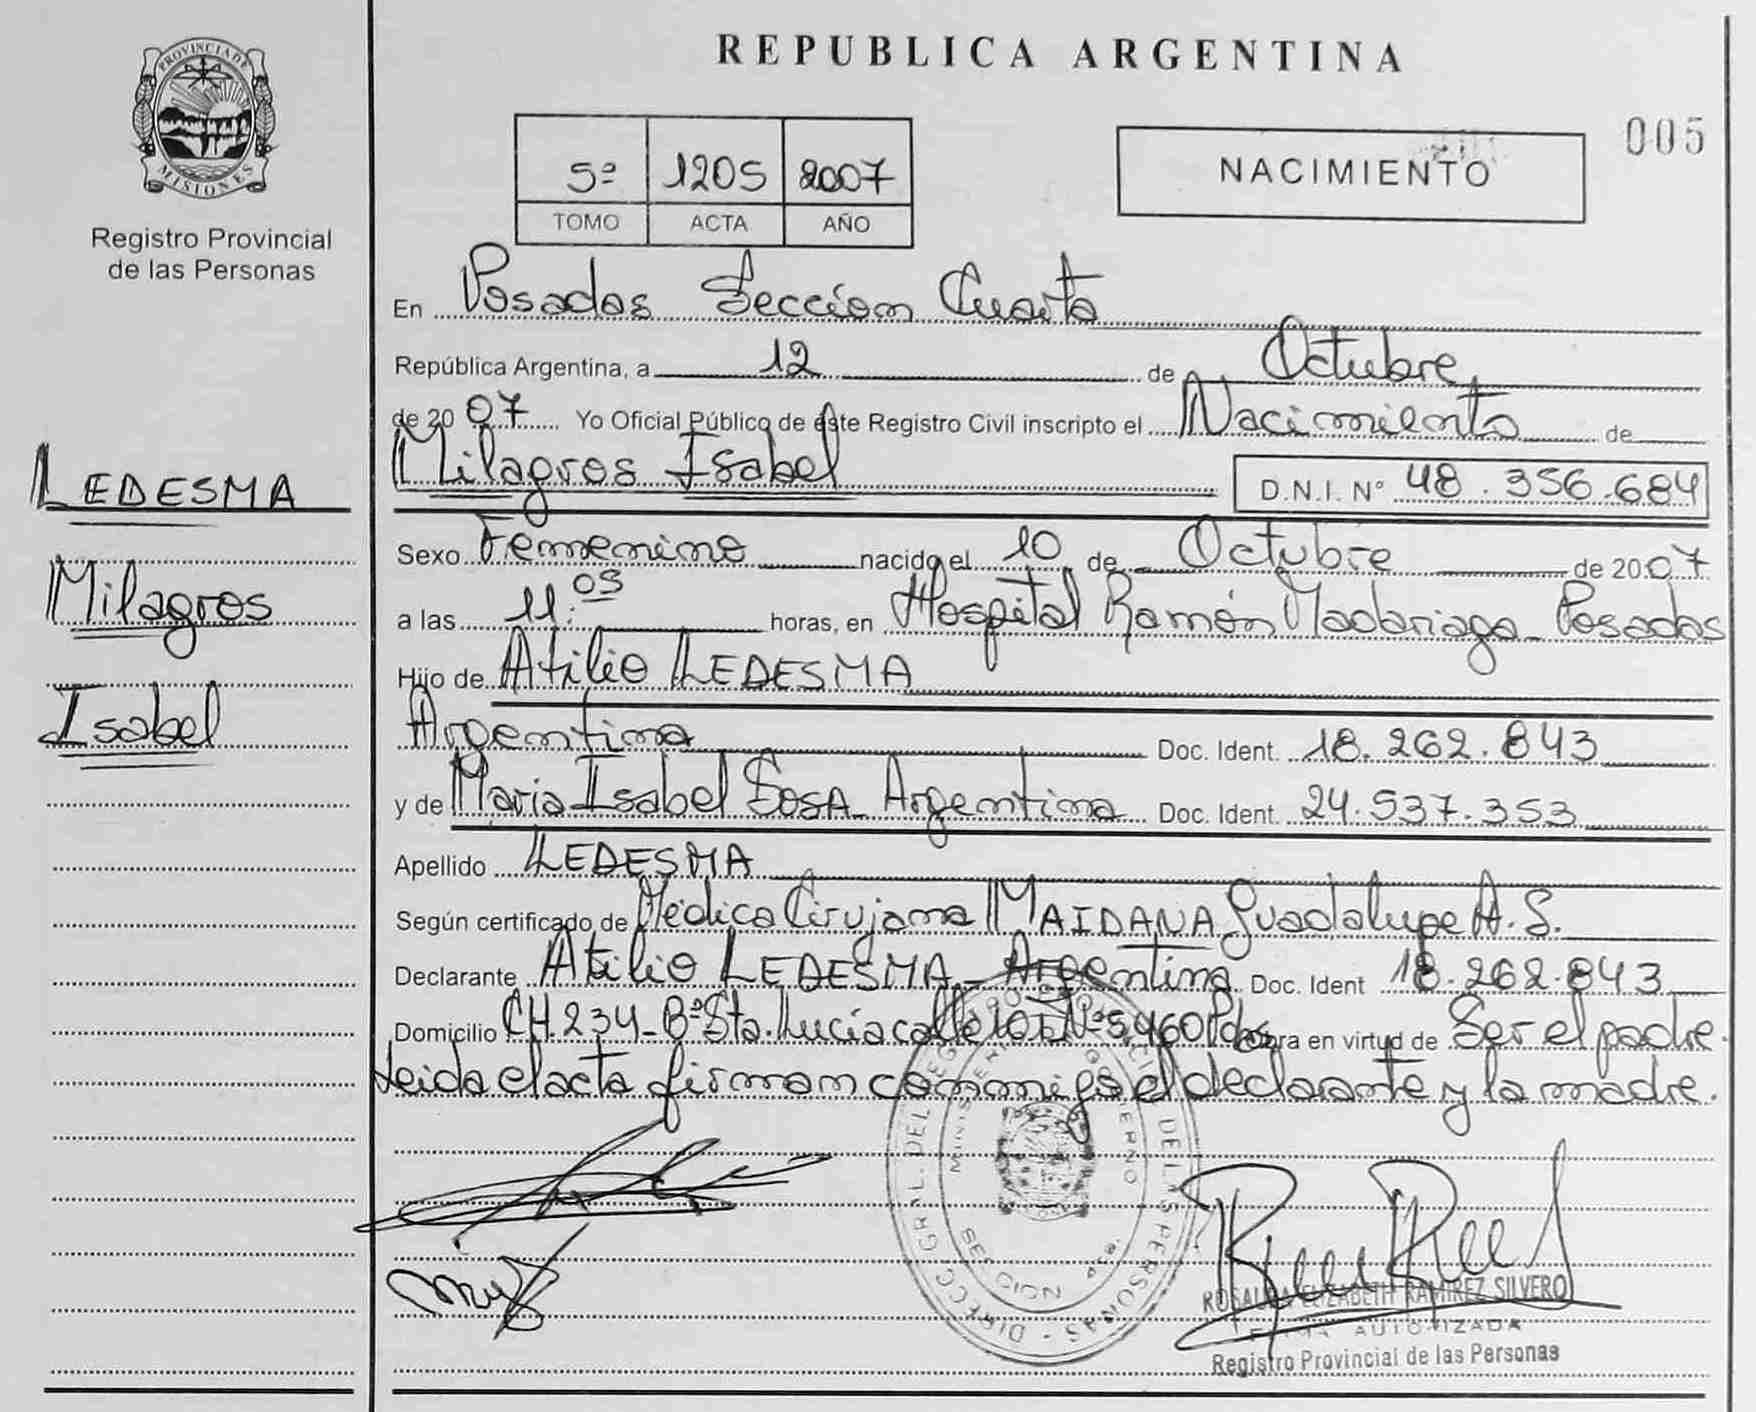 PROVINCIA DE
MISIONES
Registro Provincial
de las Personas
LEDESMA
Milagros
Isabel
REPUBLICA ARGENTINA
005
5º 1205 2007
TOMO ACTA AÑO
NACIMIENTO
En Posadas Sección Cuarta
República Argentina, a 12 de Octubre
de 2007 Yo Oficial Público de este Registro Civil inscripto el Nacimiento de
Milagros Isabel D.N.I. Nº 48.356.684
Sexo Femenino nacido el 10 de Octubre de 2007
a las 11:05 horas, en Hospital Ramón Madariaga Posadas
Hijo de Atilio LEDESMA
Argentina Doc. Ident. 18.262.843
y de Maria Isabel SOSA Argentina Doc. Ident. 24.537.353
Apellido LEDESMA
Según certificado de Médica Cirujana MAIDANA Guadalupe A. S.
Declarante Atilio LEDESMA - Argentina Doc. Ident 18.262.843
Domicilio CH.234-Bº Sta. Lucia calle 101 Nº 5.960 Pdas Obra en virtud de Ser el padre.
Leida el acta firman conmigo el declarante y la madre.
ROSALBA ELIZABETH RAMIREZ SILVERO
FIRMA AUTORIZADA
Registro Provincial de las Personas